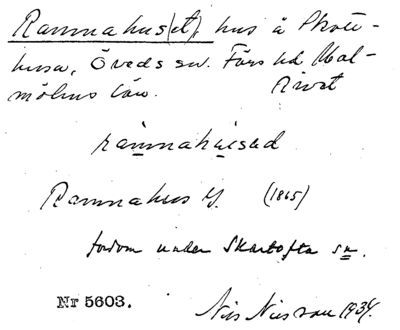 Rammahus(et), hus å Skarte-
husa, Öveds sn. Färs hd Mal-
möhus län. Rivet
rammahused
Rammahus Y. (1865)
fordom under Skartofta sn.
Nr 5603.
Nils Nilsson 1934.